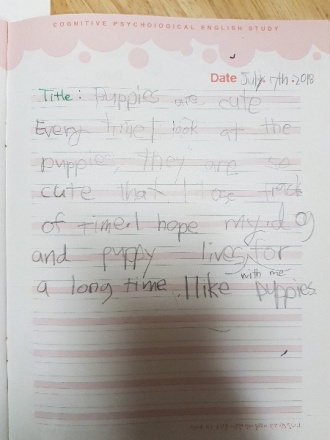 COGNITIVE PSYCHOLOGICAL ENGLISH STUDY
Date July 17th. 2018
Title: Puppies are cute
Every time I look at the
puppies, they are so
cute that I lose track
of time. I hope my dog
and puppy lives for
with me
a long time. I like puppies.